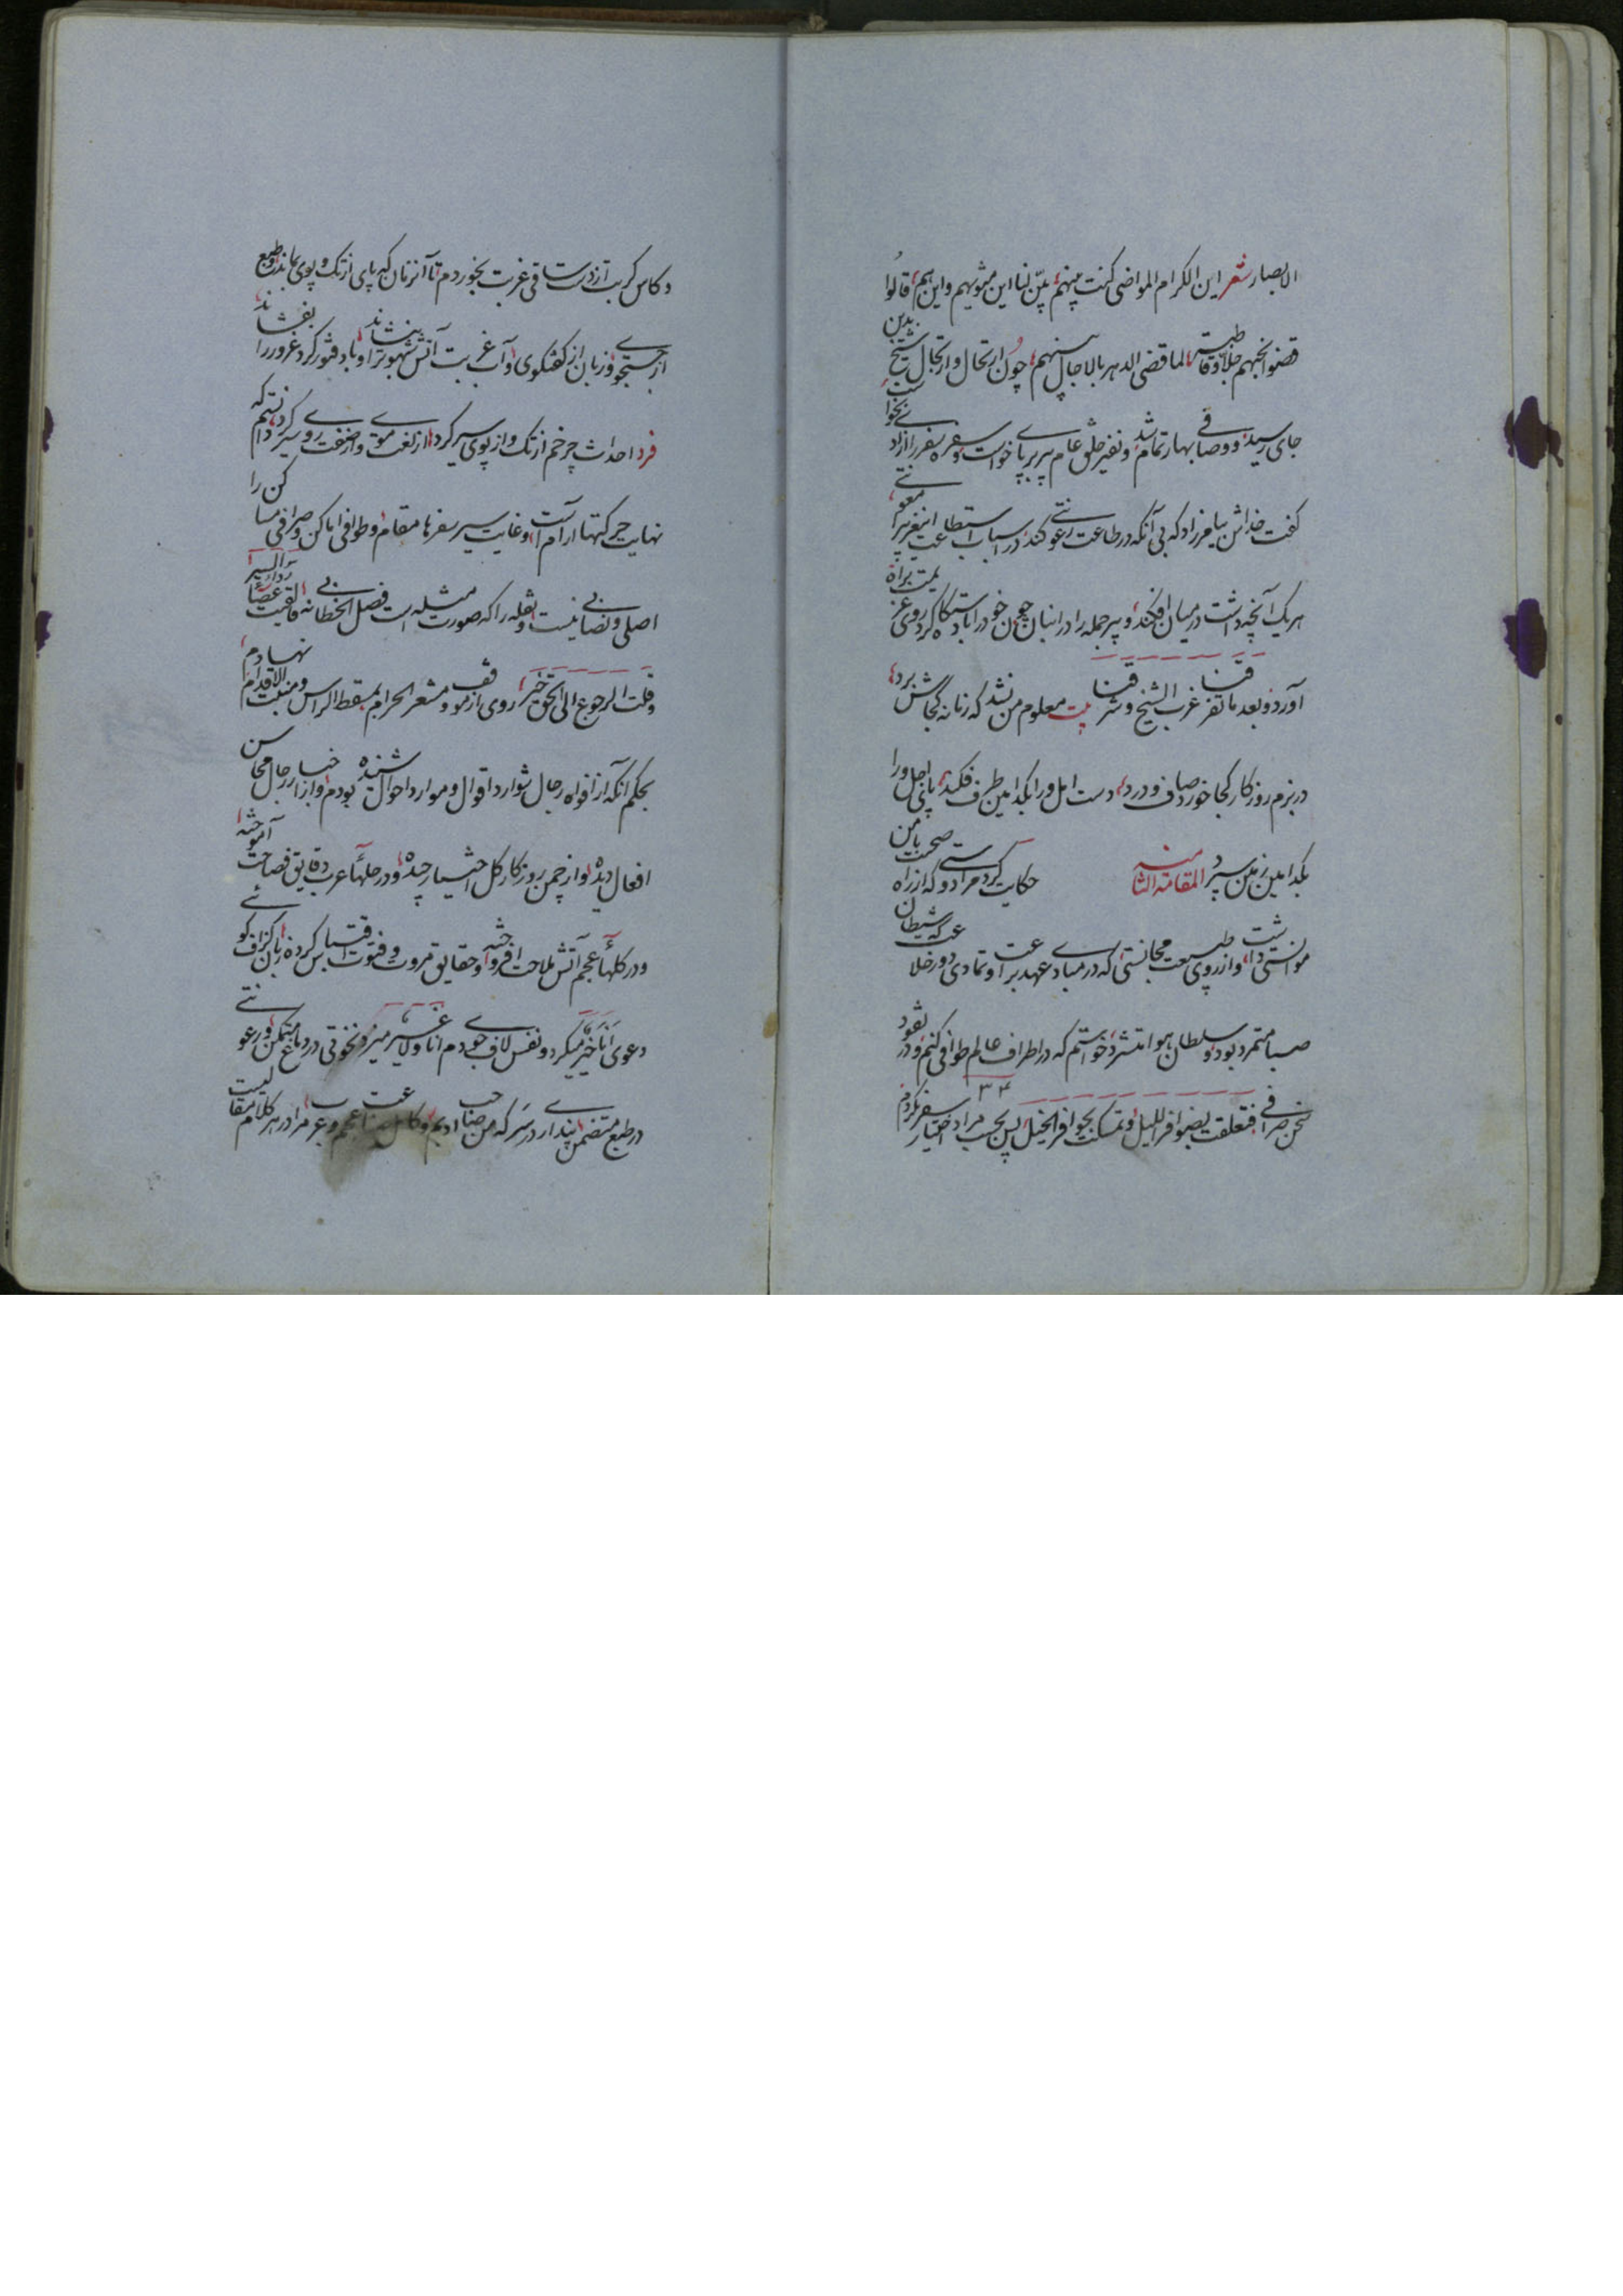 الابصار شعر این الکرام المواضی کنت بینهم بیّن لنا این مثویهم و این هم قالوا
قضوا نحبهم طیبة جلا وقا لما قضی الدهر بالاجال بینهم چون ارتحال و ارتجال شیخ بدین
جای رسید و وصافی بهار تمام شد و نفیر خلق عام پیر بر پای خواست و سفره سفر را از زاد بخواست
گفت خداش بیامرزاد که بی آنکه در طاعت رعونتی کند در اسباب استطاعت این پیر را معونتی
هر یک آنچه داشت در میان افکند و پیر جمله را در انبان چون خود را با دستگاه کرد روی عزیمت براه
آورد و بعد ما تفرقنا غرب الشیخ و شرقنا بیت معلوم من نشد که زمانه کجاش برد
در بزم روزگار کجا خورد صاف و درد دست امل ورا بکدامین طرف فکند پای اجل ورا
بکدامین زمین سپرد المقامة الثامنیه حکایت کرد مرا دوستی که از راه صحبت با من
موانستی داشت و از روی طبیعت مجانستی که در مبادی عهد براعت و تمادی دور خلاعت که شیطان
صبا متمرد بود و سلطان هوا متشرد خواستم که در اطراف عالم طوافی کنم و در نقود
سخن صرافی فتعلقت بضوافر اللیل و تمسکت بحوافر الخیل پس بحسب مراد اختیار سفر کردم
۱۳۴
و کاس کربت از دست ساقی غربت بخوردم تا آنزمان که پای از تک و پوی بماند و طبع
از جستجوی و زبان از گفتگوی و آب غربت آتش شهوت را بنشاند و باد فتور گرد غرور را بفشاند
فرد احداث چرخم از تک و از پوی سیر کرد از لغت موی و از صفت روی سیر کرد دانستم که
نهایت حرکتها آرام است و غایت سیر سفرها مقام و طوافی اماکن و صرافی مساکن را
اصلی و نصابی نیست و نقله را که صورت مثله است فصل الخطابی نه فالقیت عصا السیر
وقلت الرجوع الی الحق خیر روی از موقف و مشعر الحرام بمسقط الراس و منبت الاقدام نهادم
بحکم آنکه از افواه رجال شوارد اقوال و موارد احوال شنیده بودم و از اخبار رجال محاسن
افعال دیده و از چمن روزگار گل اختیار چیده و در حلهاء عرب دقایق فصاحت آموخته
و در کلهاء عجم آتش ملاحت افروخته و حقایق مروت و فتوت اقتباس کرده زبان گزاف گوئی
دعوی انا خیر میکرد و نفس لاف جوی دم انا و لا غیر میزد نخوتی در دماغ متمکن و رعونتی
در طبع متضمن پنداری در سر که من صاحب ادبم و کامل صناعت عجم و عرب مرا در هر کلام مقامیست